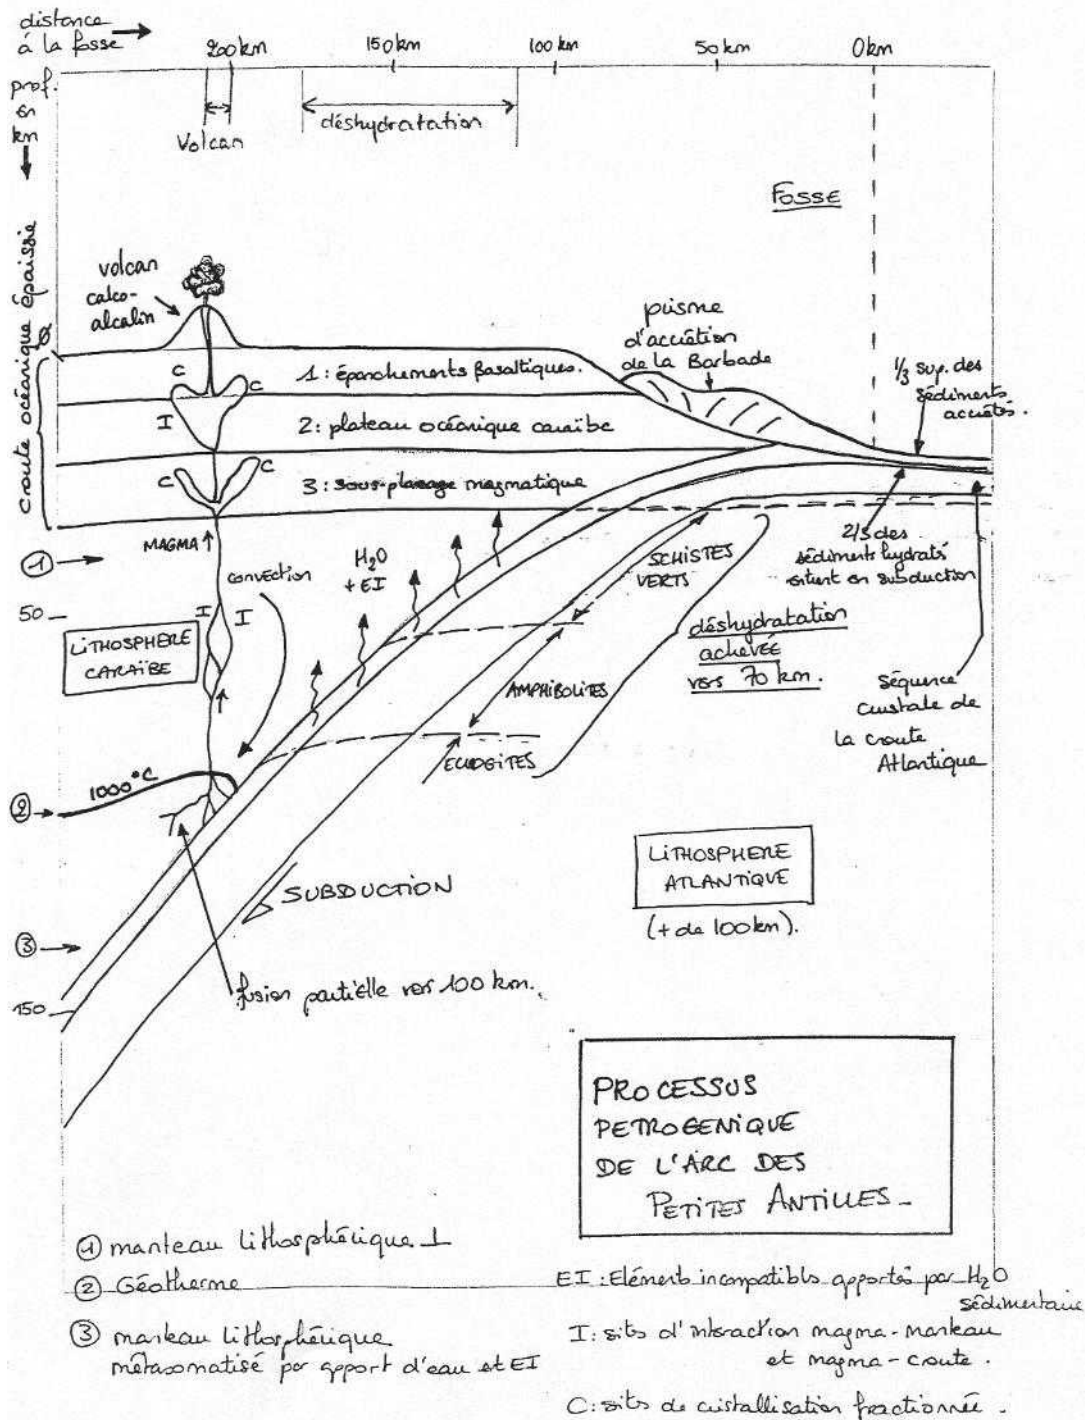 distance
à la fosse
200km
150km
100km
50km
0km
prof.
en
km
Volcan
déshydratation
FOSSE
croute océanique épaissie
volcan
calco-
alcalin
prisme
d'accrétion
de la Barbade
1/3 sup. des
sédiments
accrétés.
0
C
C
1: épanchements basaltiques.
I
2: plateau océanique caraïbe
C
C
3: sous-placage magmatique
1
MAGMA
convection
H2O
+ EI
SCHISTES
VERTS
2/3 des
sédiments hydratés
entrent en subduction
50
I
I
LITHOSPHERE
CARAÏBE
déshydratation
achevée
vers 70 km.
AMPHIBOLITES
séquence
crustale de
la croute
Atlantique
ECLOGITES
1000°C
2
LITHOSPHERE
ATLANTIQUE
(+ de 100km).
SUBDUCTION
3
fusion partielle vers 100 km.
150
PROCESSUS
PETROGENIQUE
DE L'ARC DES
PETITES ANTILLES_
1 manteau lithosphérique ⊥
2 Géotherme
3 manteau lithosphérique
métasomatisé par apport d'eau et EI
EI: Eléments incompatibles apportés par H2O
sédimentaire
I: sites d'interaction magma-manteau
et magma-croute.
C: sites de cristallisation fractionnée.